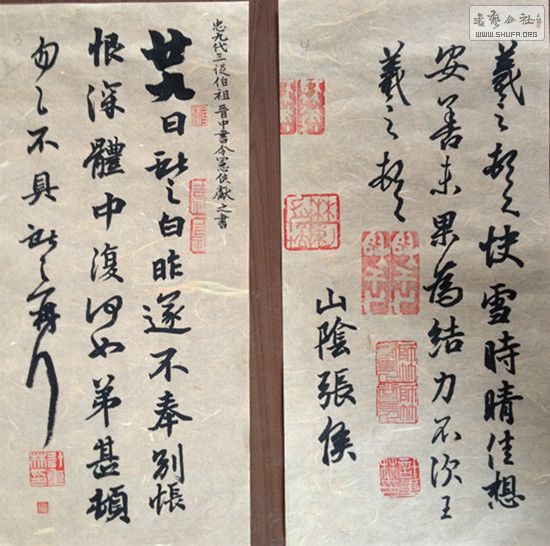 書藝公社
WWW.SHUFA.ORG
羲之頓首快雪時晴佳想
安善未果為結力不次王
羲之頓首
山陰張侯
忠九代三從伯祖晉中書令憲侯獻之書
廿九日獻之白昨遂不奉別悵
恨深體中復何如弟甚頓
匆匆不具獻之再拜